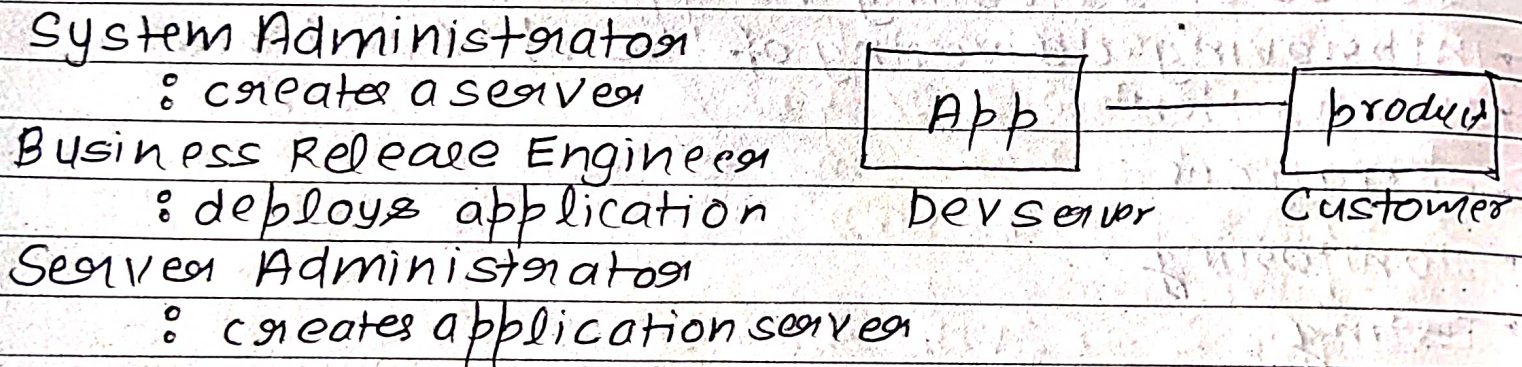 System Administrator
: creates a server
Business Release Engineer
: deploys application
Server Administrator
: creates application server
App
product
Dev server
Customer